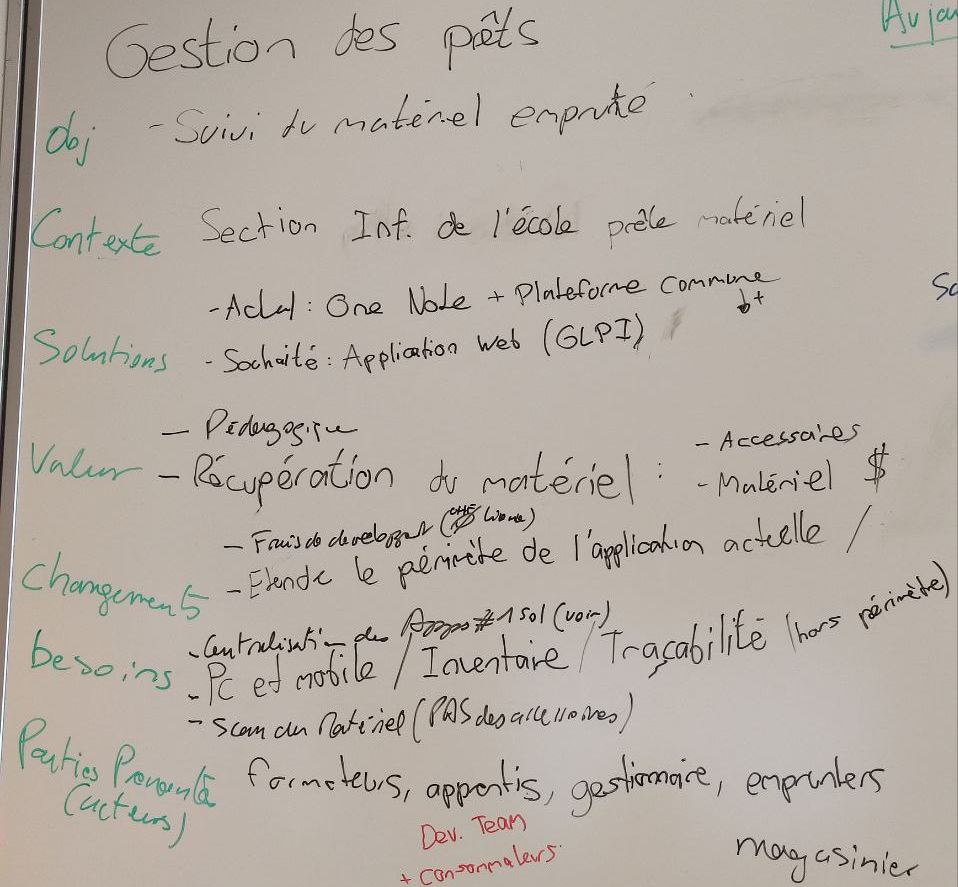 Aujou
Gestion des prêts
Obj - Suivi du matériel emprunté
Contexte Section Inf. de l'école prête matériel
- Actuel : One Note + Plateforme commune
+
Solutions - Souhaité : Application web (GLPI)
- Pédagogique
Valeur - Récupération du matériel : - Accessoires
- Matériel $
- Etendre le périmètre de l'application actuelle /
Changements
- Centralisation des #1 sol (voir)
besoins - Pc et mobile / Inventaire / Traçabilité (hors périmètre)
- Scan du Matériel (PAS des accessoires)
Parties Prenantes formateurs, apprentis, gestionnaire, emprunters
(acteurs)
Dev. Team
+ consommateurs.
magasinier